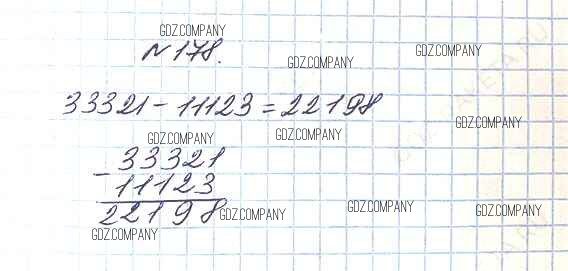 GDZ.COMPANY
№178.
GDZ.COMPANY
GDZ.COMPANY
33321-11123=22198
GDZ.COMPANY
GDZ.COMPANY
GDZ.COMPANY
- 33321
11123
22198
GDZ.COMPANY
GDZ.COMPANY
GDZ.COMPANY
GDZ.COMPANY